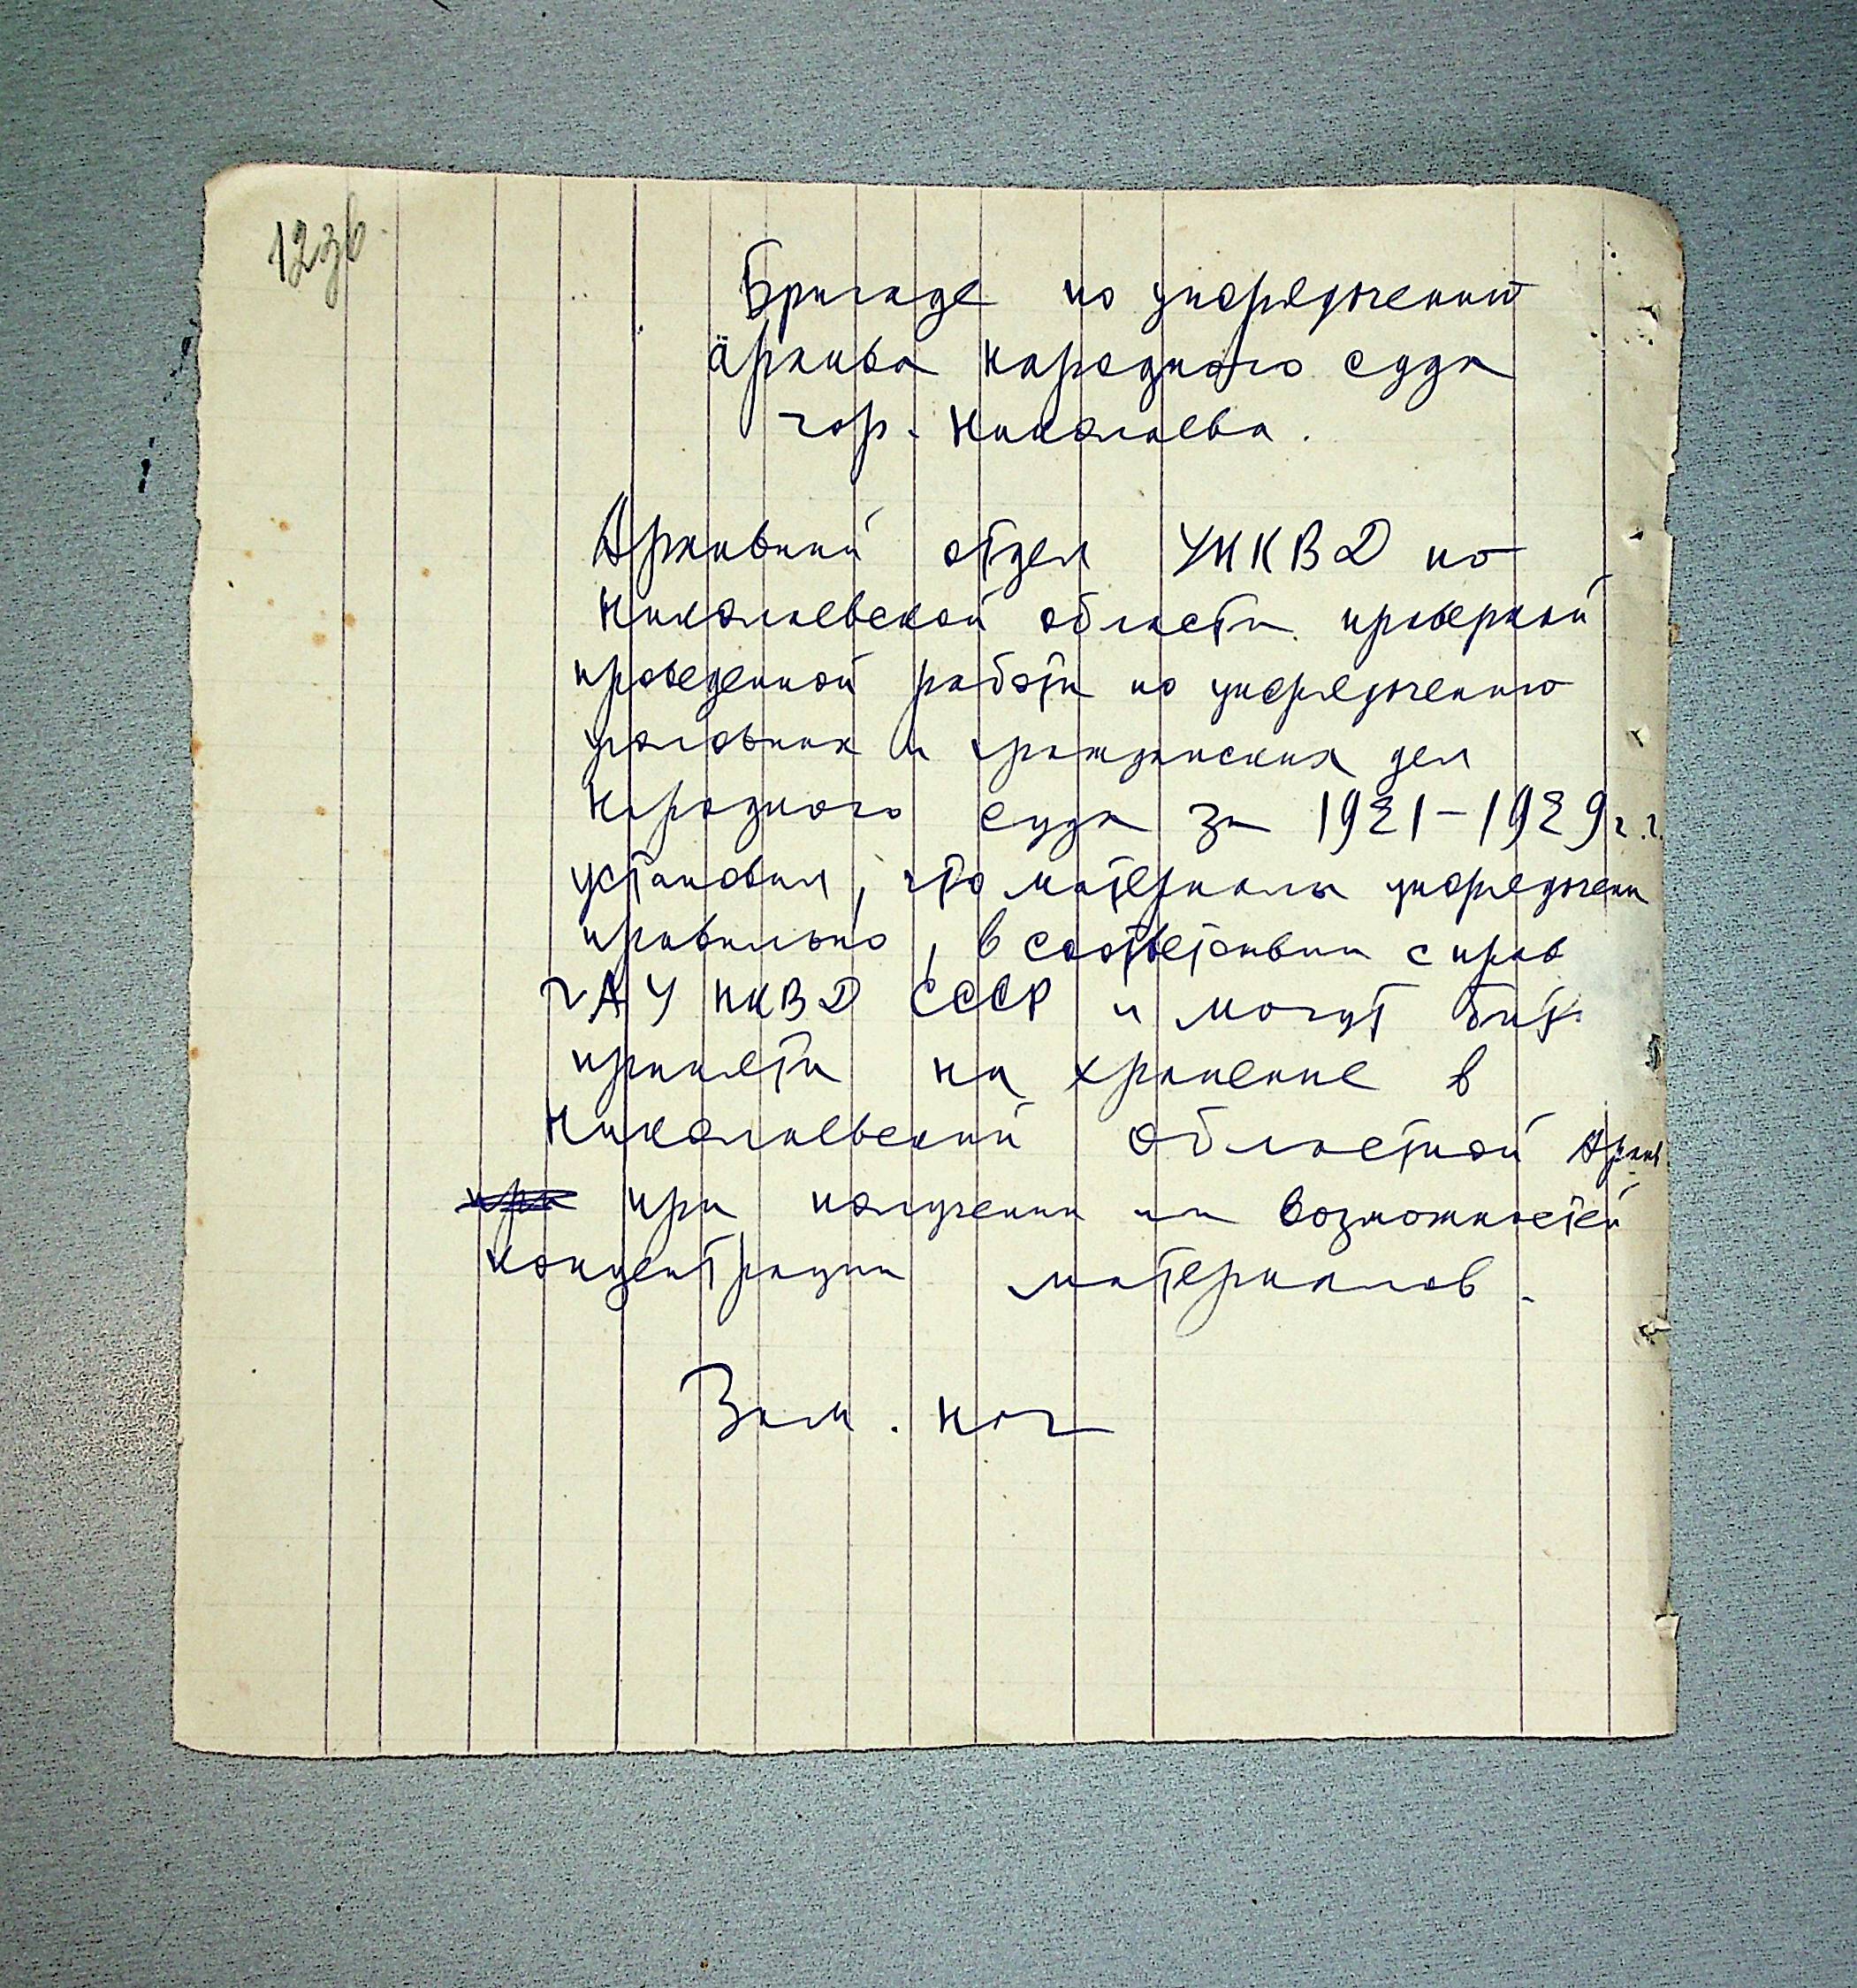 123б
Бригаде по упорядочению
архива народного суда
гор. Николаева.
Архивный отдел УНКВД по
Николаевской области проверкой
проведенной работы по упорядочению
уголовных и гражданских дел
Народного суда за 1921-1929 г.г.
установил, что материалы упорядочены
правильно, в соответствии с прав
ГАУ НКВД СССР и могут быть
приняты на хранение в
Николаевский Областной Архив
при при получении им возможностей
концентрации материалов.
Зам. нач